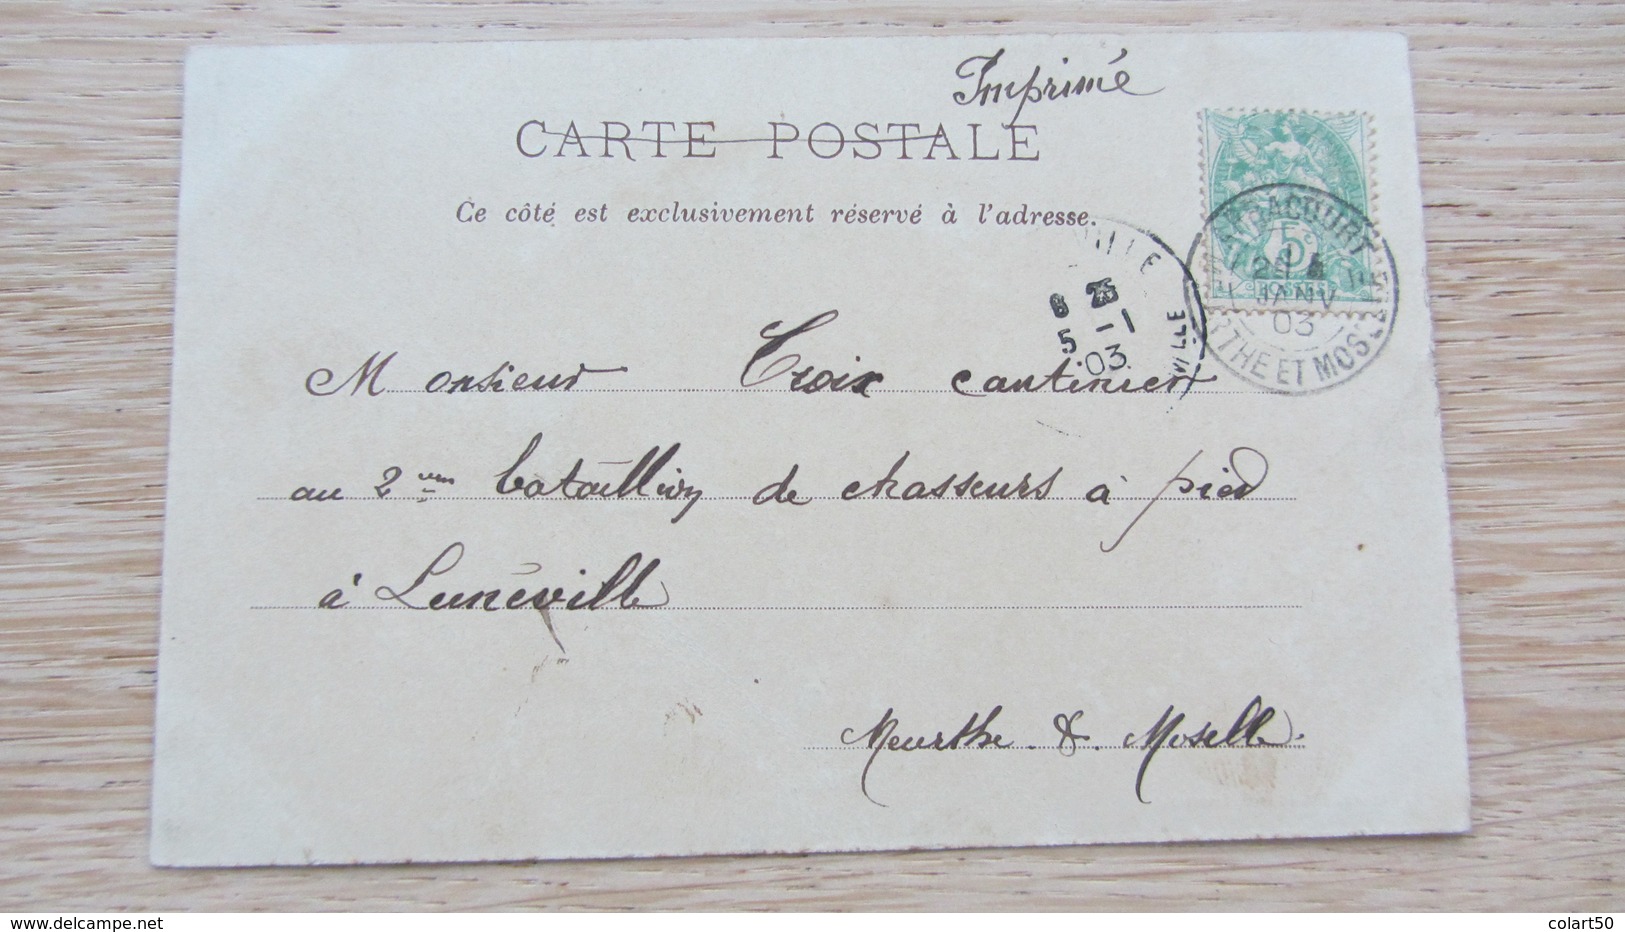 Imprimé
CARTE POSTALE
Ce côté est exclusivement réservé à l'adresse.
5c
POSTES
ARRACOURT
JANV
03
RTHE ET MOS
VILLE
8 25
5 -1
03
Monsieur Croix cantinier
au 2ème bataillion de chasseurs à pied
à Lunéville
Meurthe & Moselle.
www.delcampe.net
colart50